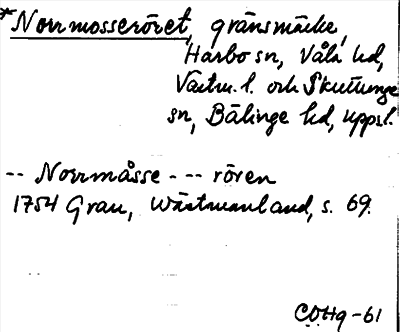 *Norrmosseröret, gränsmärke,
Harbo sn, Våla hd,
Västm. l. och Skuttunge
sn, Bälinge hd, Uppsl.
-- Norrmåsse - -- rören
1754 Grau, Wästmanland, s. 69.
COHq-61